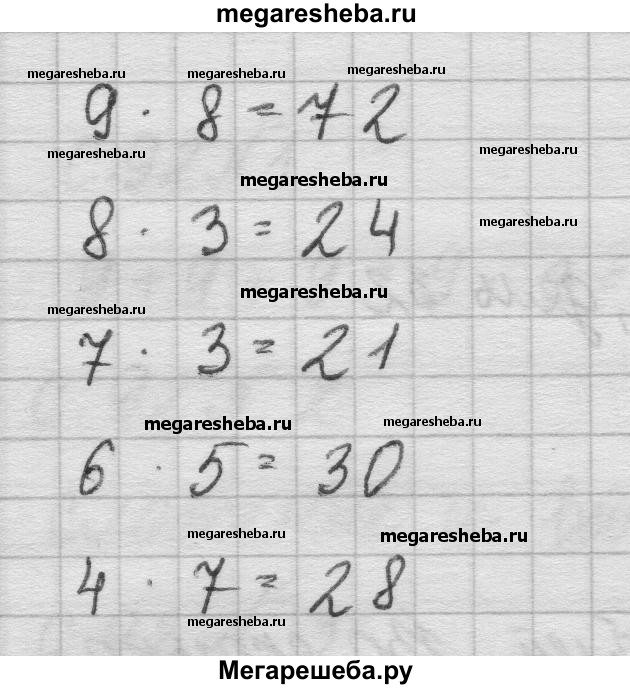 megaresheba.ru
megaresheba.ru megaresheba.ru megaresheba.ru
9 · 8 = 72
megaresheba.ru megaresheba.ru
megaresheba.ru
8 · 3 = 24 megaresheba.ru
megaresheba.ru
megaresheba.ru
7 · 3 = 21
megaresheba.ru megaresheba.ru
6 · 5 = 30
megaresheba.ru megaresheba.ru
4 · 7 = 28
megaresheba.ru
Мегарешеба.ру